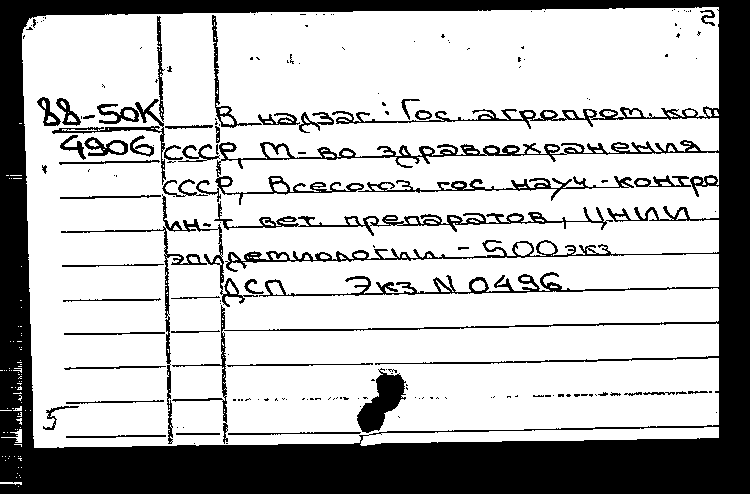 2
88-50К В надзаг.: Гос. агропром. ком
4906 СССР, М-во здравоохранения
СССР, Всесоюз. гос. науч.-контро
ин-т вет. препаратов, ЦНИИ
эпидемиологии. - 500 экз
ДСП. Экз. N 0496.
5